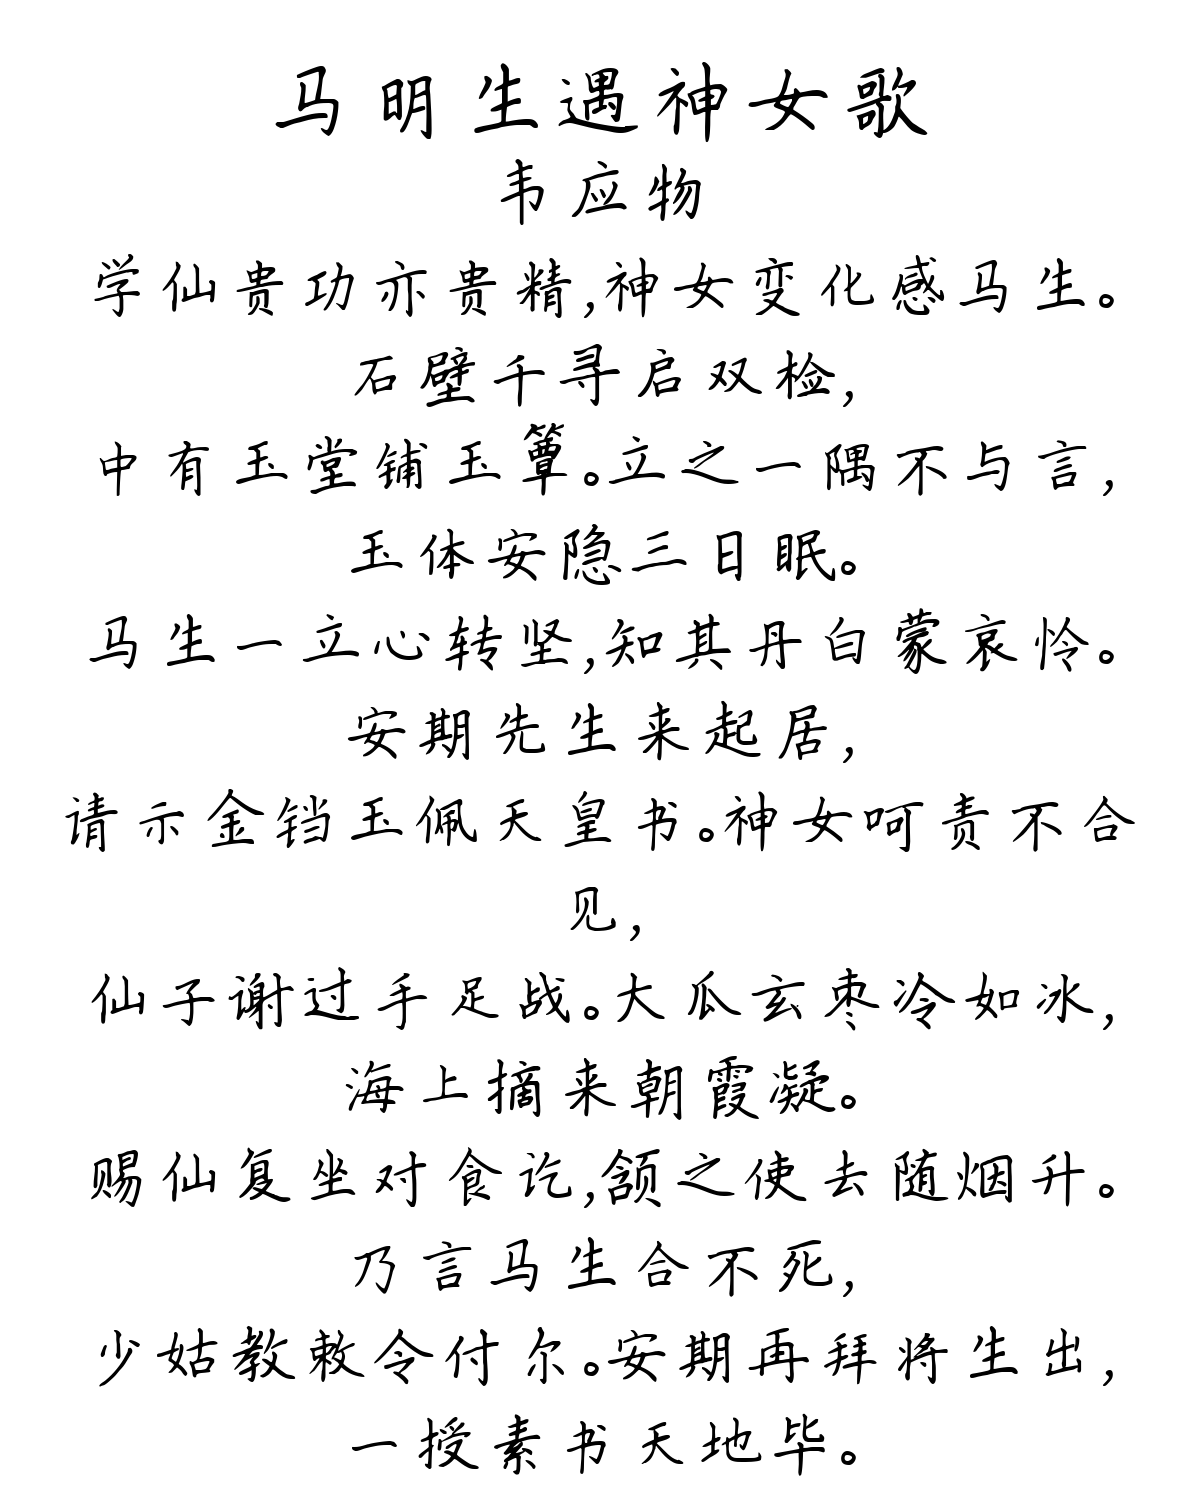 马明生遇神女歌
韦应物
学仙贵功亦贵精,神女变化感马生。
石壁千寻启双检,
中有玉堂铺玉簟。立之一隅不与言,
玉体安隐三日眠。
马生一立心转坚,知其丹白蒙哀怜。
安期先生来起居,
请示金铛玉佩天皇书。神女呵责不合
见,
仙子谢过手足战。大瓜玄枣冷如冰,
海上摘来朝霞凝。
赐仙复坐对食讫,颔之使去随烟升。
乃言马生合不死,
少姑教敕令付尔。安期再拜将生出,
一授素书天地毕。